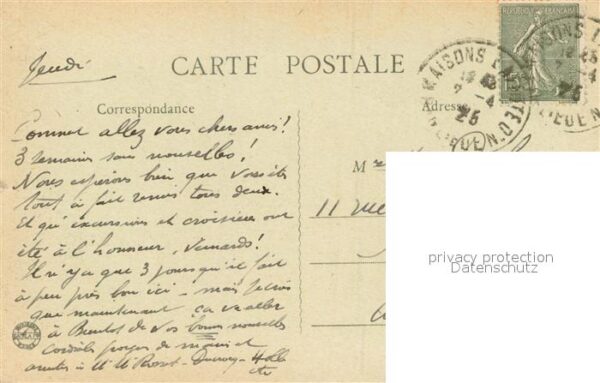 Jeudi
CARTE POSTALE
Correspondance
Adresse
RÉPUBLIQUE FRANÇAISE
MAISONS
25
Comment allez vous chers amis!
3 semaines sans nouvelles!
Nous espérons bien que vous êtes
tout à fait remis tous deux.
Et qu'excursions et croisières ont
été à l'honneur, veinards!
Il n'y a que 3 jours qu'il fait
à peu près bon ici - mais je crois
que maintenant ça va aller
à Bientôt de vos bonnes nouvelles
Cordiales
M
11 rue
privacy protection
Datenschutz